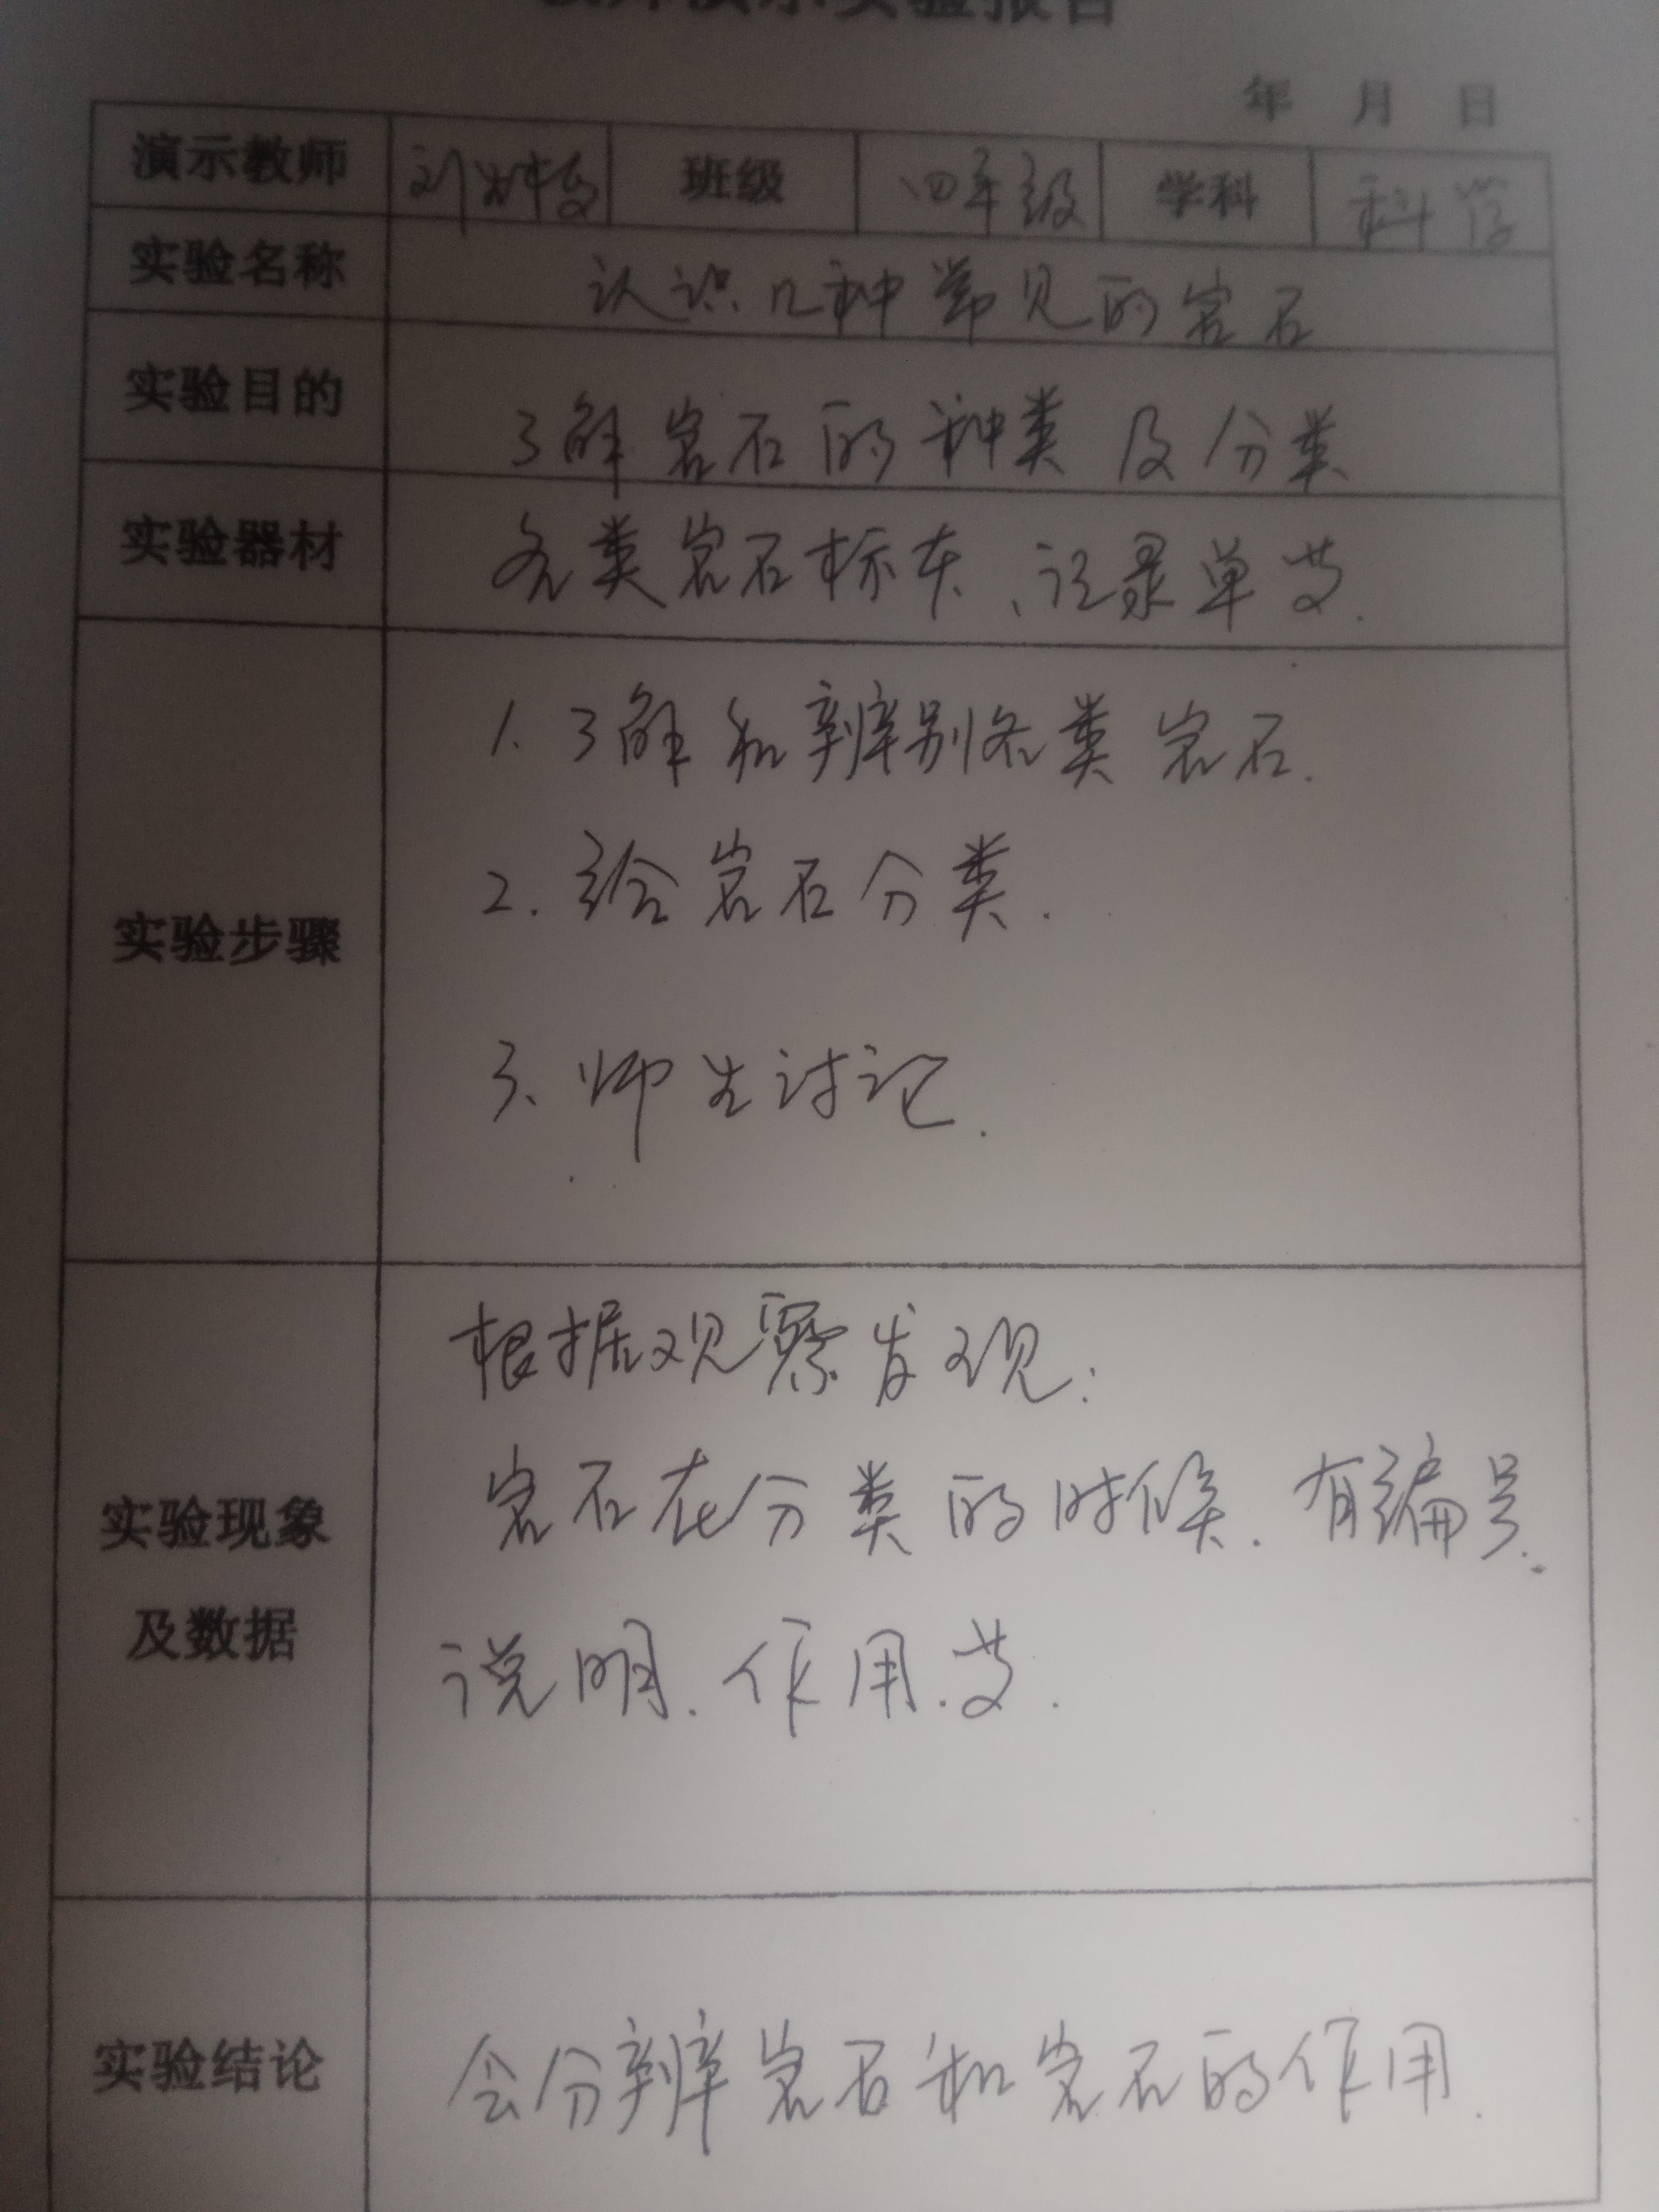 教师演示实验报告
年 月 日
演示教师 刘 班级 四年级 学科 科学
实验名称 认识几种常见的岩石
实验目的 了解岩石的种类及分类
实验器材 各类岩石标本、记录单等.
实验步骤
1. 了解和辨别各类岩石.
2. 给岩石分类.
3、师生讨论.
实验现象
及数据
根据观察发现:
岩石在分类的时候.有编号.
说明.作用.等.
实验结论 会分辨岩石和岩石的作用.